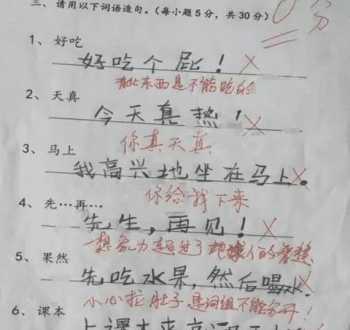 三、请用以下词语造句。(每小题5分,共30分) 0分
1、好吃
好吃个屁!×
有些东西是不能吃的
2、天真
今天真热!×
你真天真
3、马上
我高兴地坐在马上。×
你给我下来
4、先…再…
先生,再见!×
想象力超过了地球人的
5、果然
先吃水果,然后喝水。
小心拉肚子 是词组不能分开!
6、课本
上课本来